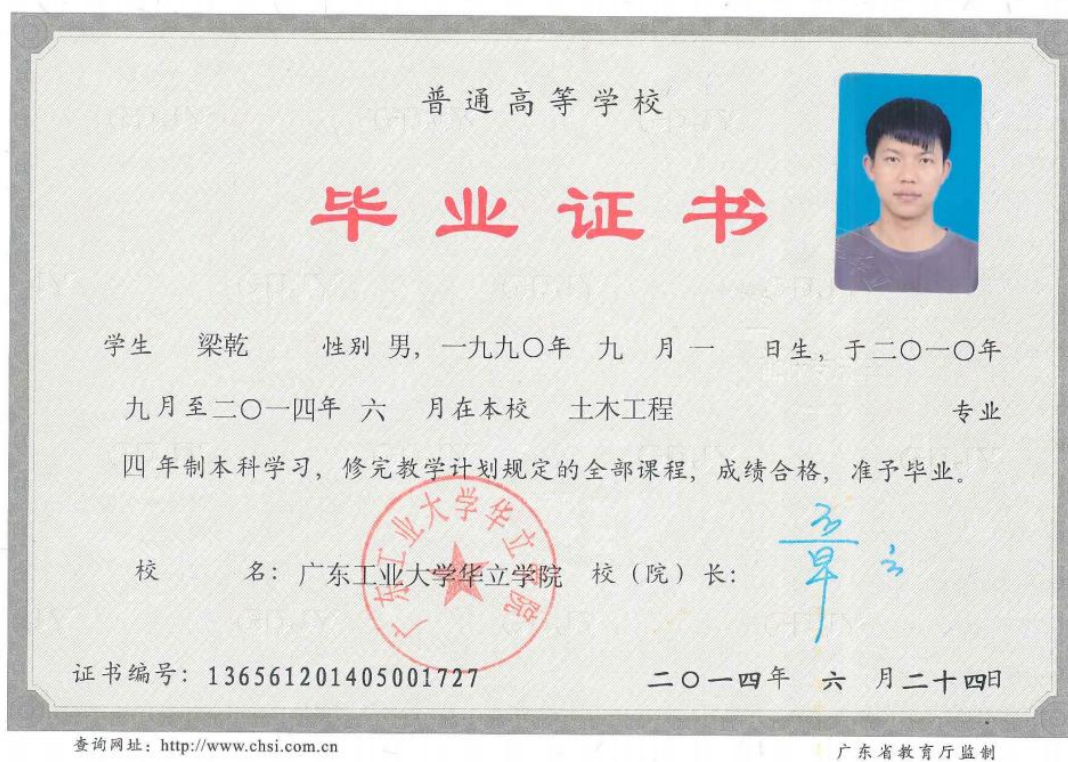 普通高等学校
毕业证书
学生 梁乾 性别 男，一九九〇年 九 月 一 日生，于二〇一〇年
九月至二〇一四年 六 月在本校 土木工程 专业
四 年制本科学习，修完教学计划规定的全部课程，成绩合格，准予毕业。
广东工业大学华立学院
校 名：广东工业大学华立学院 校（院）长：
证书编号：136561201405001727 二〇一四年 六 月二十四日
查询网址：http://www.chsi.com.cn 广东省教育厅监制